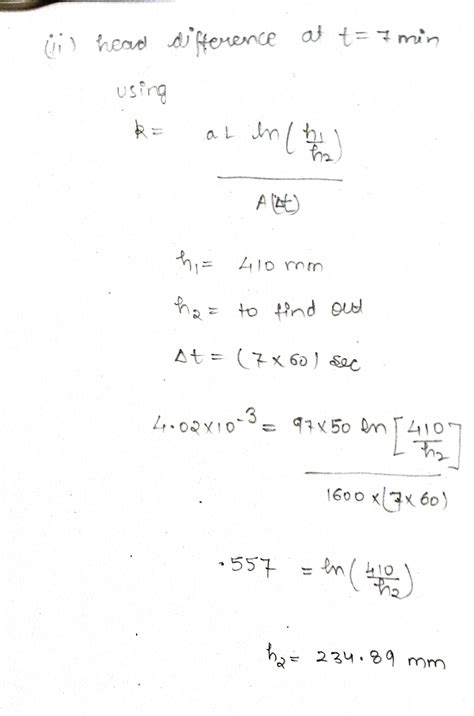 (ii) head difference at t = 7 min
using
k = aL ln(h1/h2) / A(Δt)
h1 = 410 mm
h2 = to find out
Δt = (7 x 60) sec
4.02x10^-3 = 97x50 ln[410/h2] / 1600 x (7x60)
.557 = ln(410/h2)
h2 = 234.89 mm